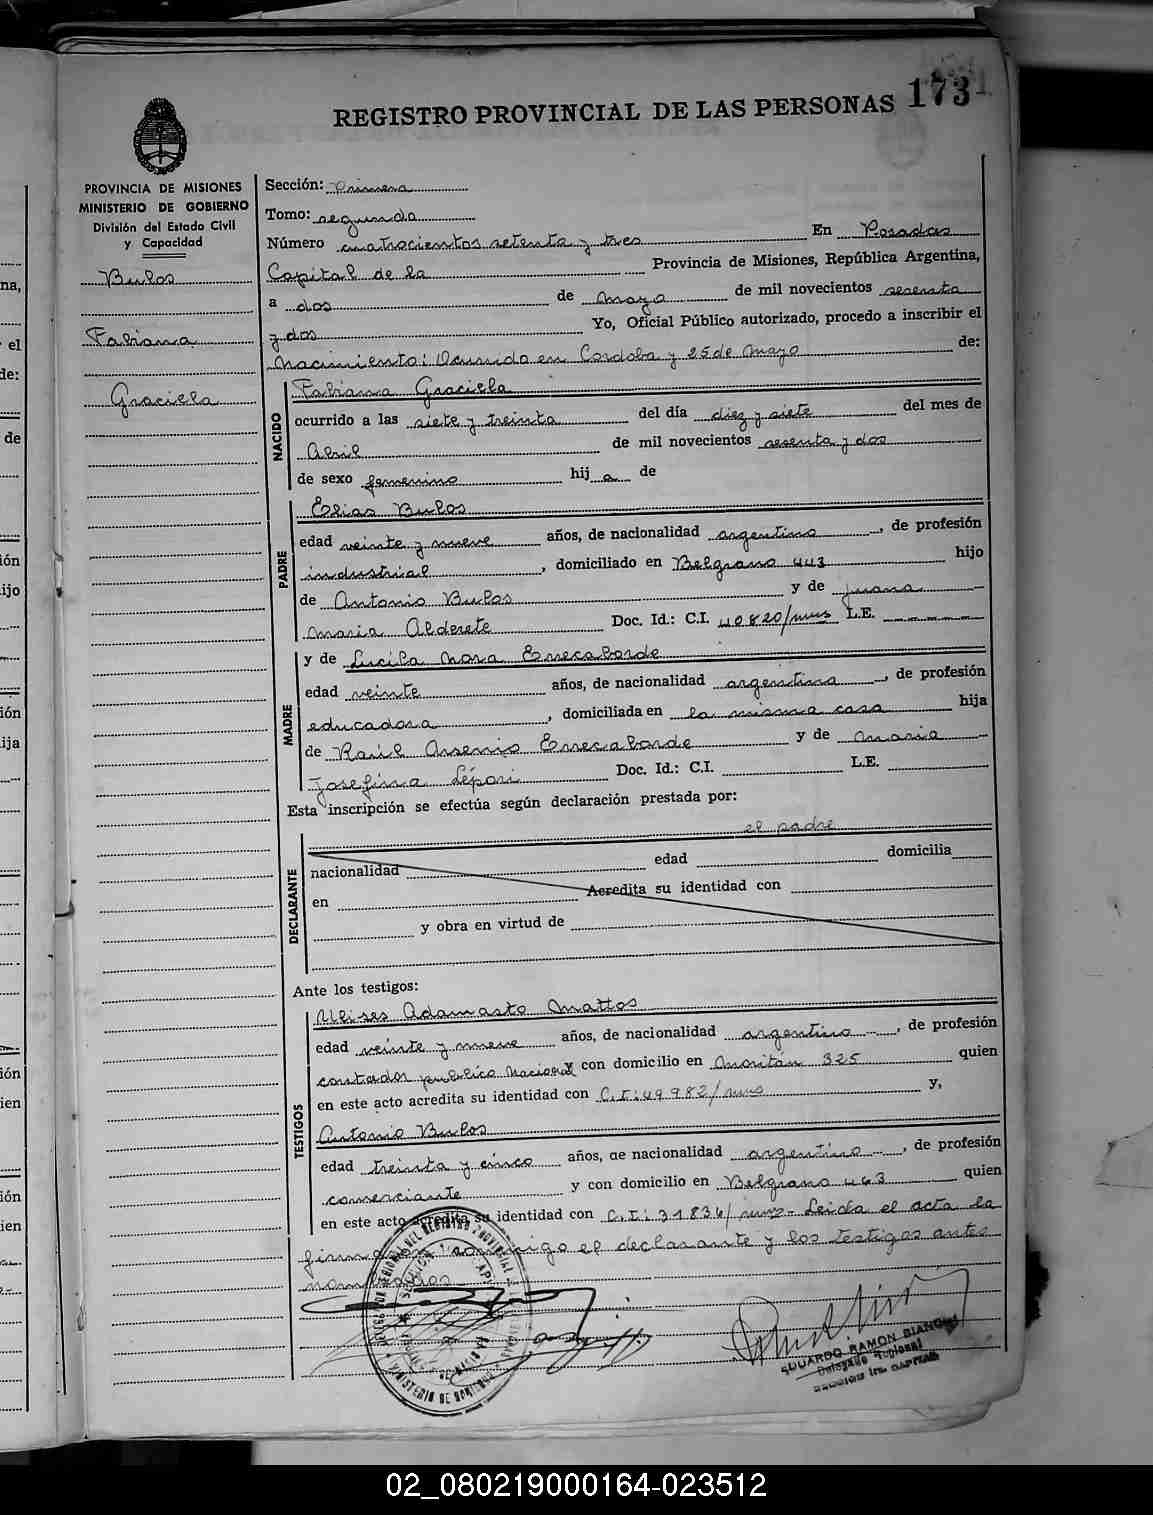 REGISTRO PROVINCIAL DE LAS PERSONAS 173
PROVINCIA DE MISIONES
MINISTERIO DE GOBIERNO
División del Estado Civil
y Capacidad
Bulos
Fabiana
Graciela
Sección: Primera
Tomo: segundo
Número cuatrocientos setenta y tres En Posadas
Capital de la Provincia de Misiones, República Argentina,
a dos de mayo de mil novecientos sesenta
y dos Yo, Oficial Público autorizado, procedo a inscribir el
Nacimiento: Ocurrido en Cordoba y 25 de Mayo de:
NACIDO
Fabiana Graciela
ocurrido a las siete y treinta del día diez y siete del mes de
Abril de mil novecientos sesenta y dos
de sexo femenino hij a de
PADRE
Elias Bulos
edad veinte y nueve años, de nacionalidad argentino, de profesión
industrial, domiciliado en Belgrano 443 hijo
de Antonio Bulos y de Juana
Maria Alderete Doc. Id.: C.I. 40820/mns L.E.
MADRE
y de Lucila Nora Errecaborde
edad veinte años, de nacionalidad argentina, de profesión
educadora, domiciliada en la misma casa hija
de Raúl Arsenio Errecaborde y de Maria
Josefina Lépori Doc. Id.: C.I. L.E.
Esta inscripción se efectúa según declaración prestada por:
el padre
DECLARANTE
nacionalidad edad domicilia
en Acredita su identidad con
y obra en virtud de
Ante los testigos:
TESTIGOS
Ulises Adamasto Mattos
edad veinte y nueve años, de nacionalidad argentino, de profesión
contador publico Nacional y con domicilio en 325 quien
en este acto acredita su identidad con C.I: 49982/mns y,
Antonio Bulos
edad treinta y cinco años, de nacionalidad argentino, de profesión
comerciante y con domicilio en Belgrano 463 quien
en este acto acredita su identidad con C.I: 31836/mns - Leida el acta la
firman conmigo el declarante y los testigos antes
nombrados
EDUARDO RAMON BIANCHI
Delegado Regional
SECCION 1ra. CAPITAL
02_080219000164-023512